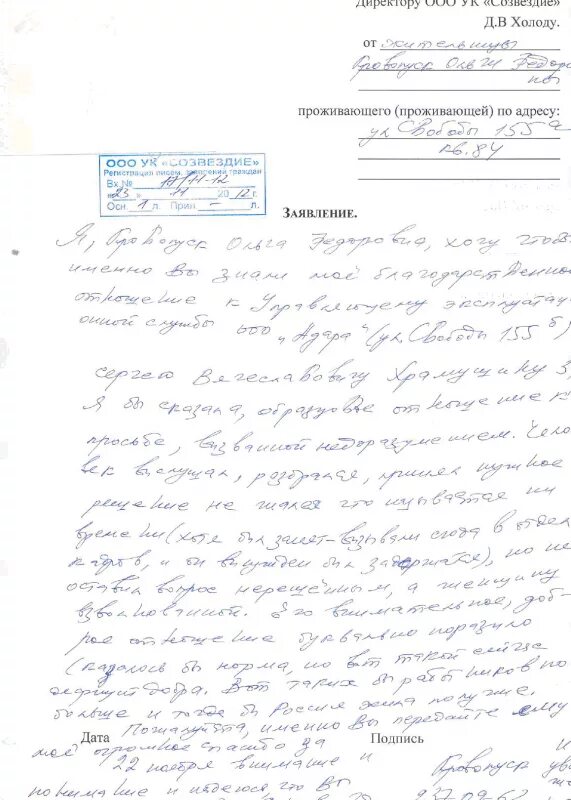 Директору ООО УК «Созвездие»
Д.В Холоду.
от жительницы
Кровопуск Ольги Федоров
ны
проживающего (проживающей) по адресу:
ул Свободы 155а
кв. 84
ООО УК «СОЗВЕЗДИЕ»
Регистрация писем, заявлений граждан
Вх № 17/11-12
«23» 11 2012 г.
Осн. 1 л. Прил — л.
Заявление.
Я, Кровопуск Ольга Федоровна, хочу чтобы
именно Вы знали моё благодарственное
отношение к Управляющему эксплуатаци
онной службы ООО „Адара" (ул. Свободы 155б)
Сергею Вячеславовичу Храмушину
Я бы сказала, образцовое отношение к
просьбе, вызванной недоразумением. Чело
век выслушал, разобрался, принял нужное
решение не жалея что называется ни
времени (хотя был занят-вызывали сюда в отдел
кадров, и он вынужден был задержаться), но не
оставил вопрос нерешённым, а женщину
взволнованной. Его внимательное, доб-
рое отношение буквально поразило
(казалось бы норма, но вот такой сейчас
дефицит добра. Вот таких бы работников по
больше и тогда бы Россия жила получше.
Дата Пожалуйста, именно Вы передайте ему Подпись
моё огромное спасибо за
22 ноября внимание и
понимание и надеюсь что Вы
Кровопуск